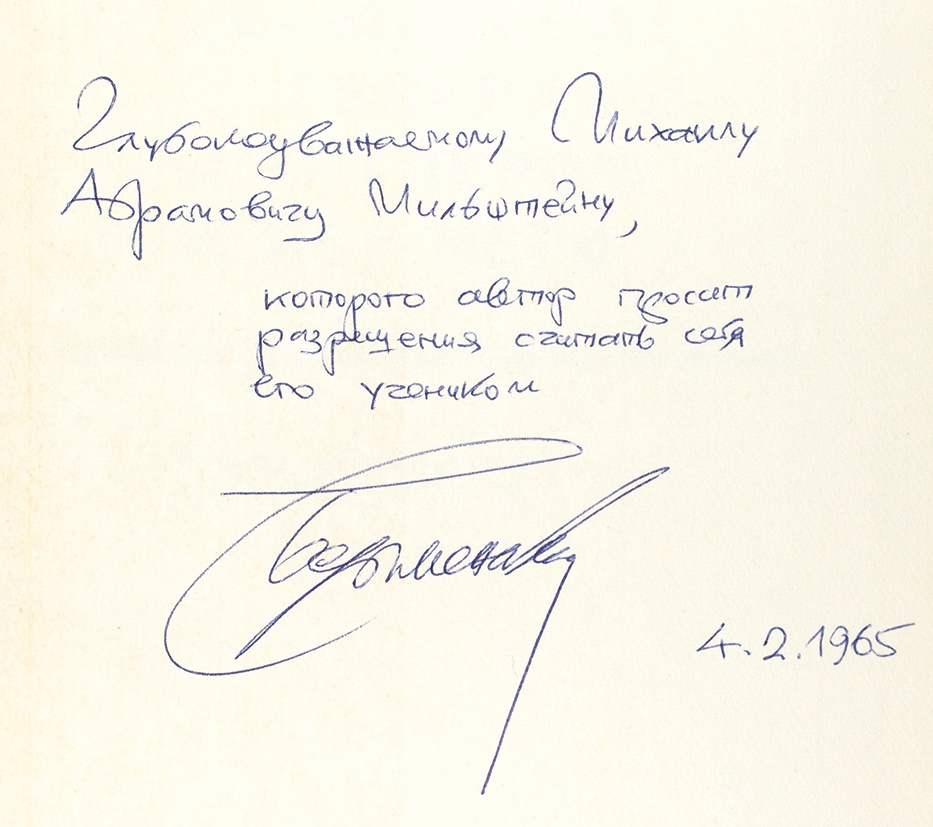 Глубокоуважаемому Михаилу
Абрамовичу Мильштейну,
которого автор просит
разрешения считать себя
его учеником
4.2.1965